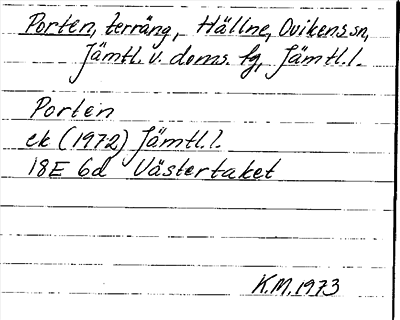 Porten, terräng, Hällne, Ovikens sn,
Jämtl. v. doms. fg, Jämtl. l.
Porten
ek (1972) Jämtl. l.
18E 6d Västertaket
K.M. 1973